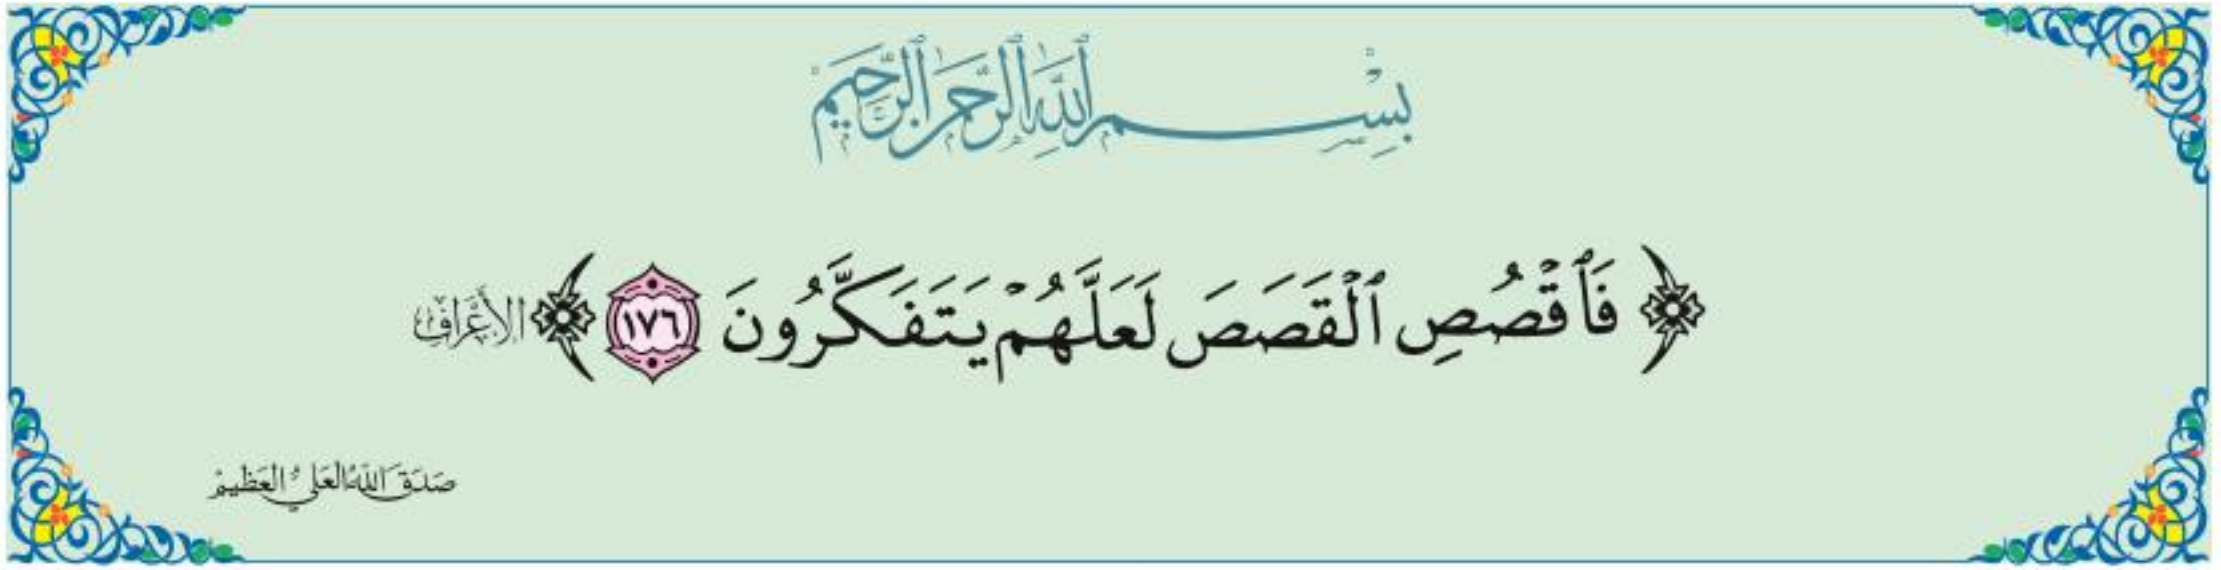 بِسْمِ ٱللَّهِ ٱلرَّحْمَٰنِ ٱلرَّحِيمِ
﴿ فَٱقْصُصِ ٱلْقَصَصَ لَعَلَّهُمْ يَتَفَكَّرُونَ ١٧٦ ﴾ الأَعْرَافِ
صَدَقَ اللَّهُ العَلِيُّ العَظِيمْ